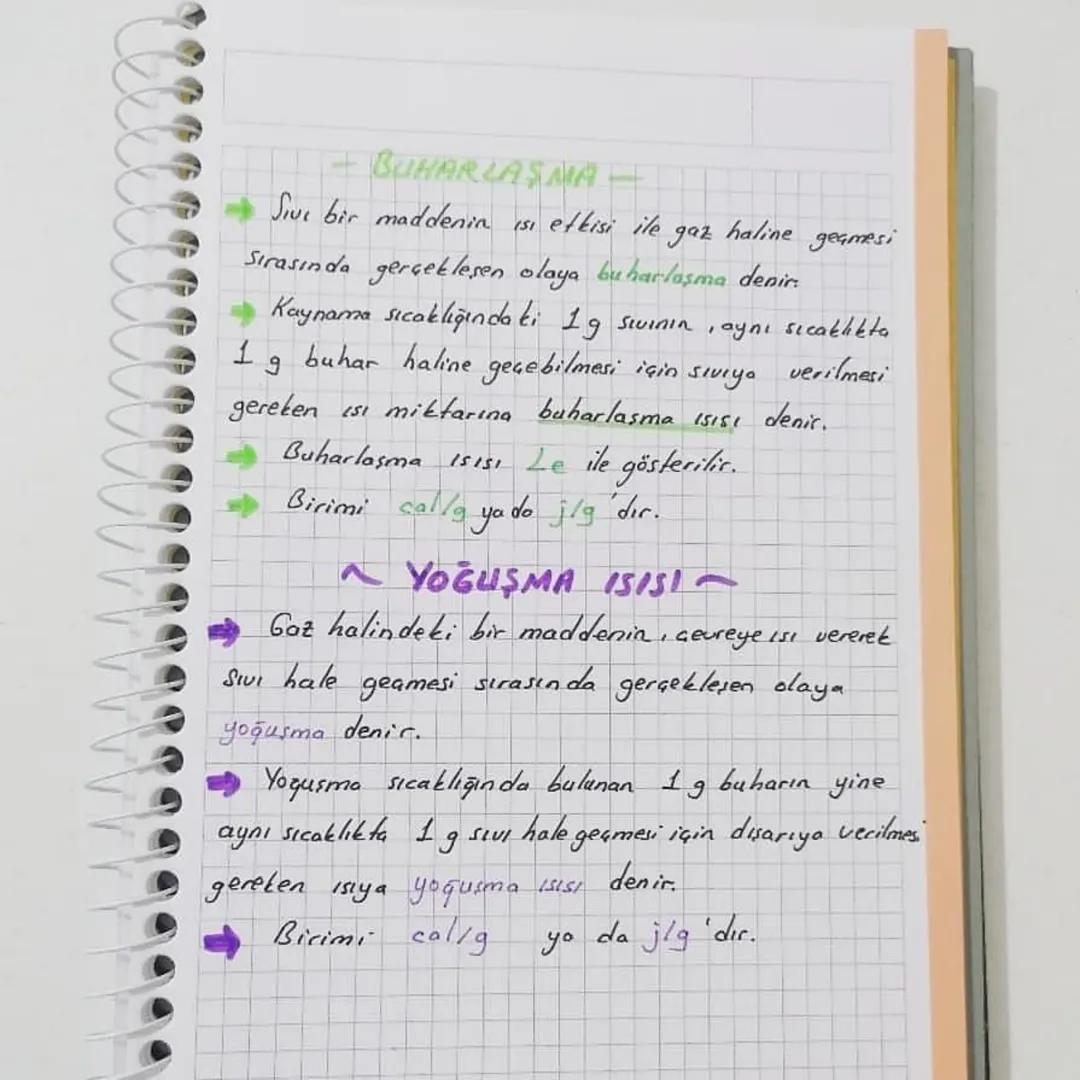 - BUHARLAŞMA -
Sıvı bir maddenin ısı etkisi ile gaz haline geçmesi
sırasında gerçekleşen olaya buharlaşma denir.
Kaynama sıcaklığındaki 1 g sıvının, aynı sıcaklıkta
1 g buhar haline geçebilmesi için sıvıya verilmesi
gereken ısı miktarına buharlaşma ısısı denir.
Buharlaşma ısısı Le ile gösterilir.
Birimi cal/g ya da j/g 'dır.
~ YOĞUŞMA ISISI ~
Gaz halindeki bir maddenin, çevreye ısı vererek
sıvı hale geçmesi sırasında gerçekleşen olaya
yoğuşma denir.
Yoğuşma sıcaklığında bulunan 1 g buharın yine
aynı sıcaklıkta 1 g sıvı hale geçmesi için dışarıya verilmesi
gereken ısıya yoğuşma ısısı denir.
Birimi cal/g ya da j/g 'dır.